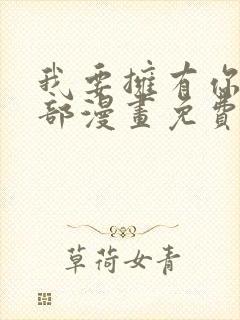 我要擁有你
部漫畫免費
草荷女青